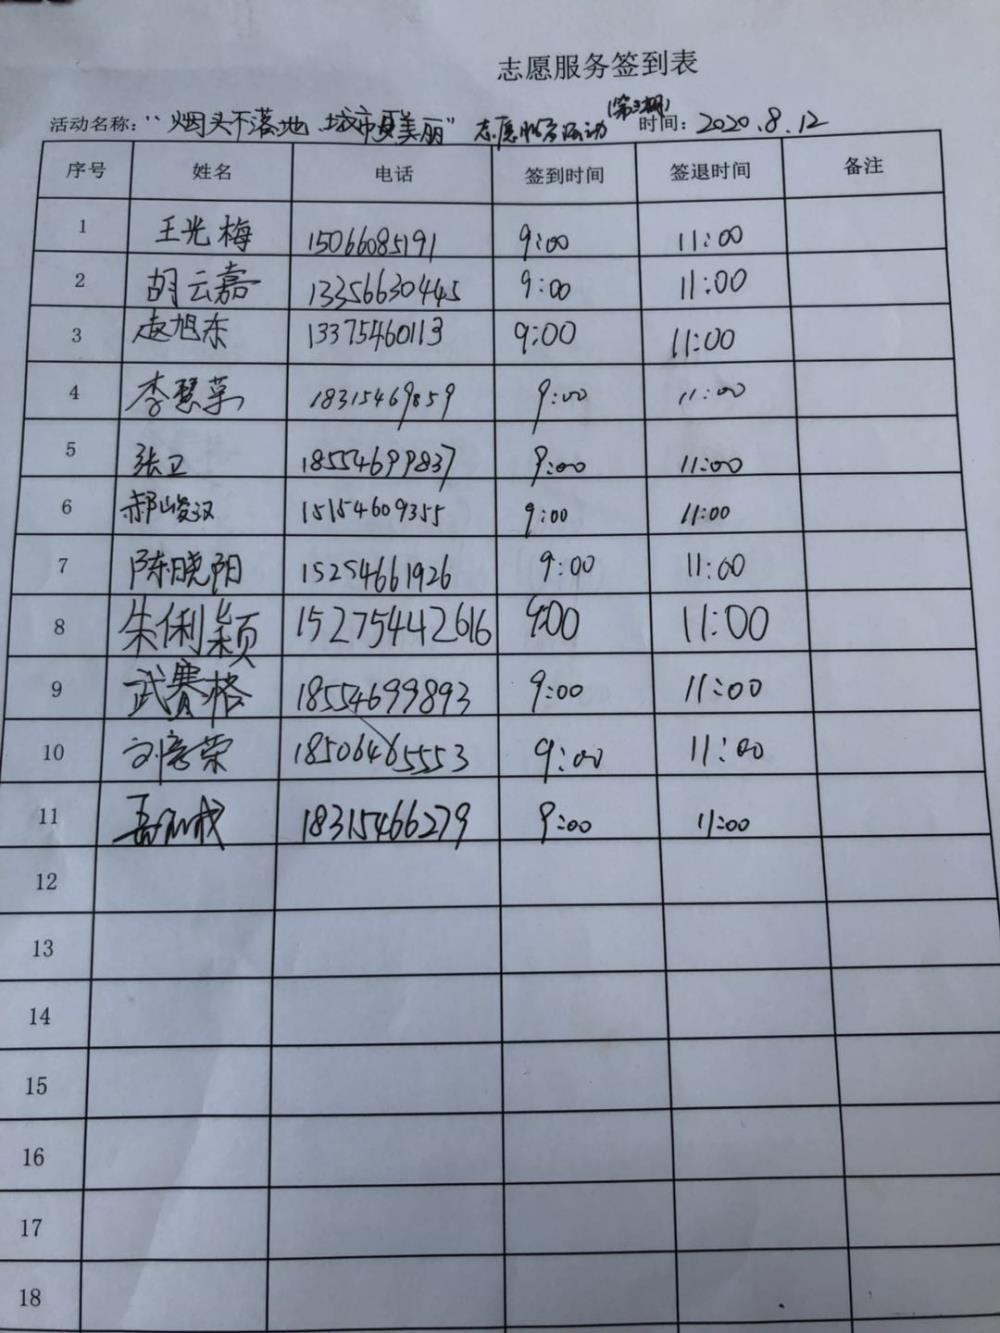 志愿服务签到表
(第3期)
活动名称："烟头不落地 城市更美丽" 志愿服务活动 时间：2020.8.12
序号 姓名 电话 签到时间 签退时间 备注
1 王光梅 15066085191 9:00 11:00
2 胡云嘉 13356630445 9:00 11:00
3 赵旭东 13375460113 9:00 11:00
4 李慧 18315469859 9:00 11:00
5 张卫 18554699837 9:00 11:00
6 郝峻汉 15154609355 9:00 11:00
7 陈晓阳 15254661926 9:00 11:00
8 朱俐颖 15275442616 9:00 11:00
9 武赛格 18554699893 9:00 11:00
10 刘荣 18506465553 9:00 11:00
11 18315466279 9:00 11:00
12
13
14
15
16
17
18